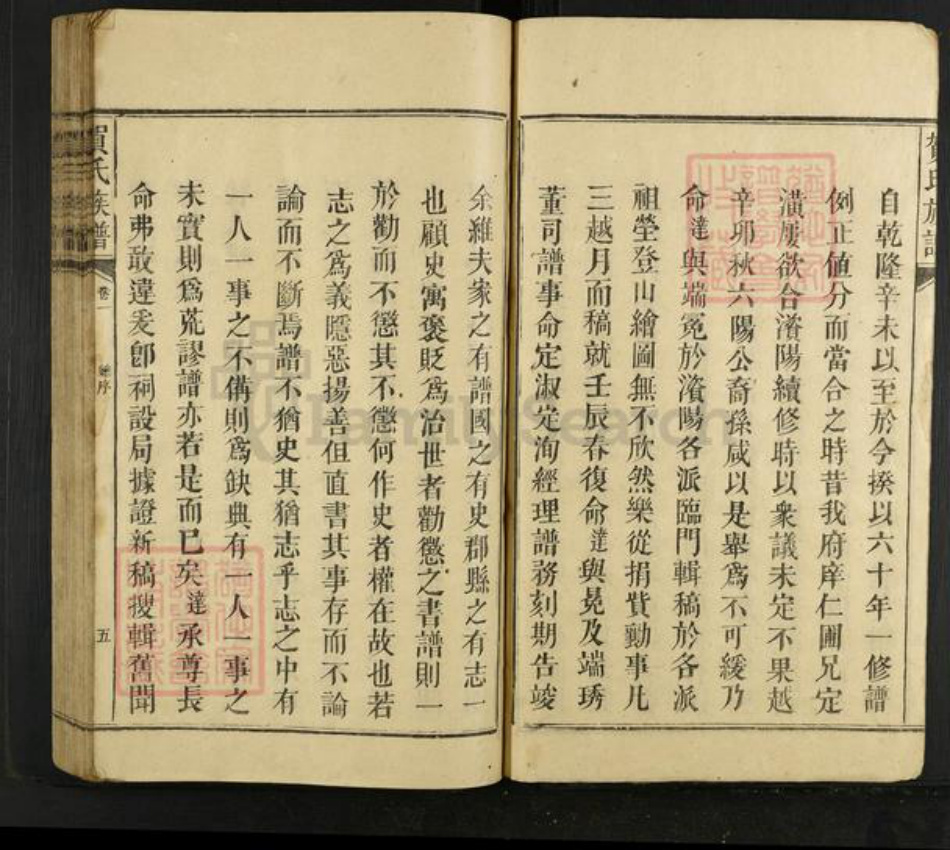 自乾隆辛未以至於今揆以六十年一修譜
例正値分而當合之時昔我府庠仁圃兄定
潢屢欲合濱陽續修時以衆議未定不果越
辛卯秋六陽公裔孫咸以是舉爲不可緩乃
命達與端冕於濱陽各派臨門輯稿於各派
祖塋登山繪圖無不欣然樂從捐貲勷事凡
三越月而稿就壬辰春復命達與冕及端琇
董司譜事命定淑定洵經理譜務刻期告竣
余維夫家之有譜國之有史郡縣之有志一
也顧史寓褒貶爲治世者勸懲之書譜則一
於勸而不懲其不懲何作史者權在故也若
志之爲義隱惡揚善但直書其事存而不論
論而不斷焉譜不猶史其猶志乎志之中有
一人一事之不備則爲缺典有一人一事之
未實則爲荒謬譜亦若是而已矣達承尊長
命弗敢違爰卽祠設局據證新稿搜輯舊聞
賀氏族譜
卷一
序
五
賀氏族譜
FamilySearch